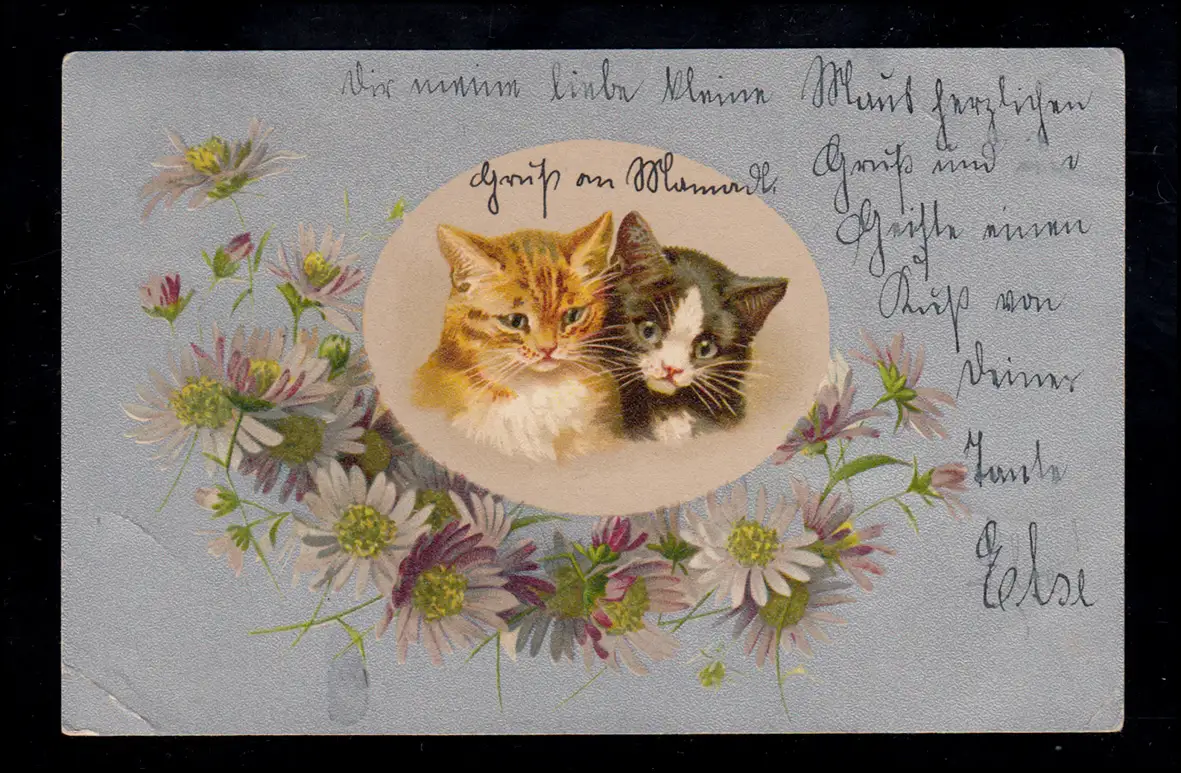 Dir meine liebe kleine Maus herzlichen
Gruß und
einen
Kuß von
Deiner
Tante
Else
Gruß an Mamadl.